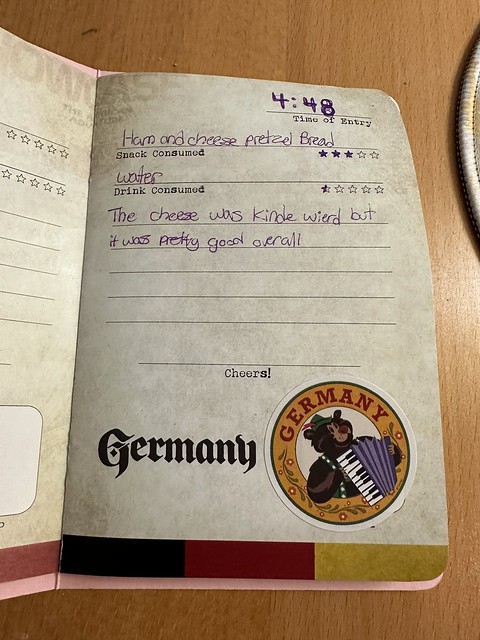 4:48
Time of Entry
Ham and cheese pretzel Bread
Snack Consumed
water
Drink Consumed
The cheese was kinde wierd but
it was pretty good overall
Cheers!
Germany
GERMANY